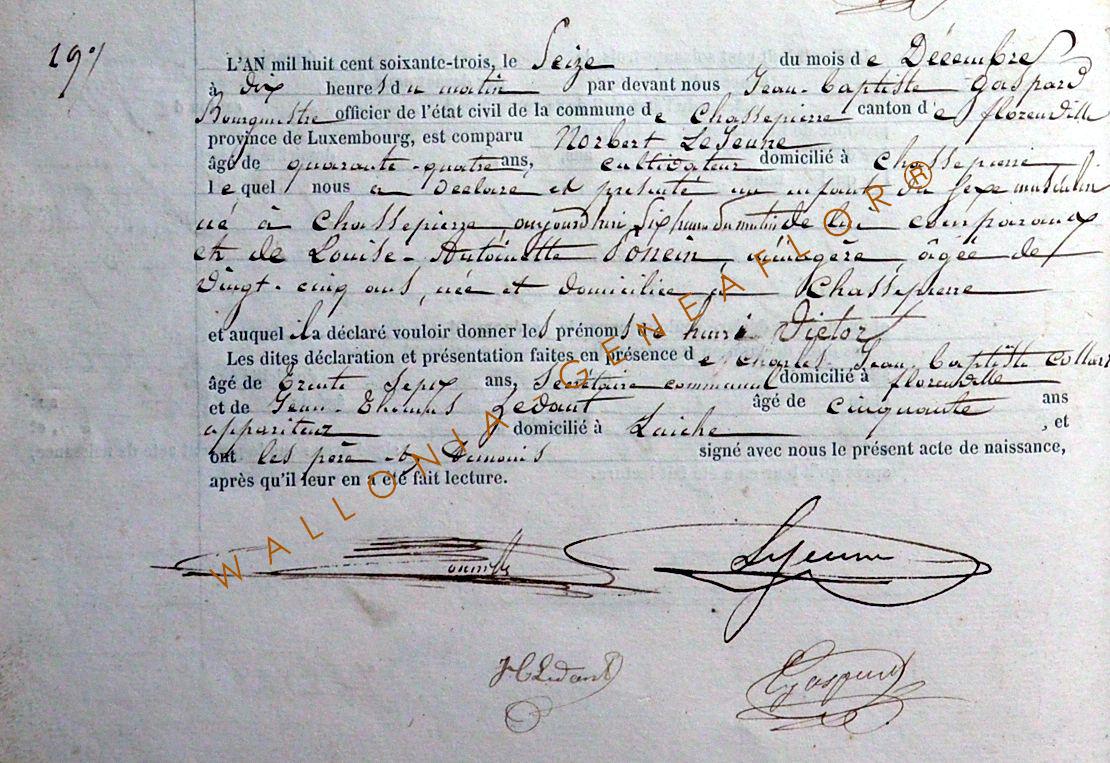 19
L'AN mil huit cent soixante-trois, le Seize du mois de Décembre
à dix heures du matin par devant nous Jean-Baptiste Gaspard
Bourgmestre officier de l'état civil de la commune de Chassepierre canton de florenville
province de Luxembourg, est comparu Norbert LeJeune
âgé de quarante-quatre ans, cultivateur domicilié à Chassepierre
lequel nous a déclaré et présenté un enfant du sexe masculin
né à Chassepierre, aujourd'hui six heures du matin de lui comparant
et de Louise-Antoinette Poncin, ménagère, âgée de
vingt-cinq ans, née et domiciliée à Chassepierre
et auquel il a déclaré vouloir donner les prénoms de henri Victor
Les dites déclaration et présentation faites en présence de Charles Jean Baptiste Collart
âgé de trente sept ans, Secrétaire communal domicilié à florenville
et de Jean-Thomas Ledant âgé de cinquante ans
appariteur domicilié à Laiche, et
ont les père et témoins signé avec nous le présent acte de naissance,
après qu'il leur en a été fait lecture.
LeJeune
JTLedant
Gaspard
WALLONIA-GENEAFLOR®